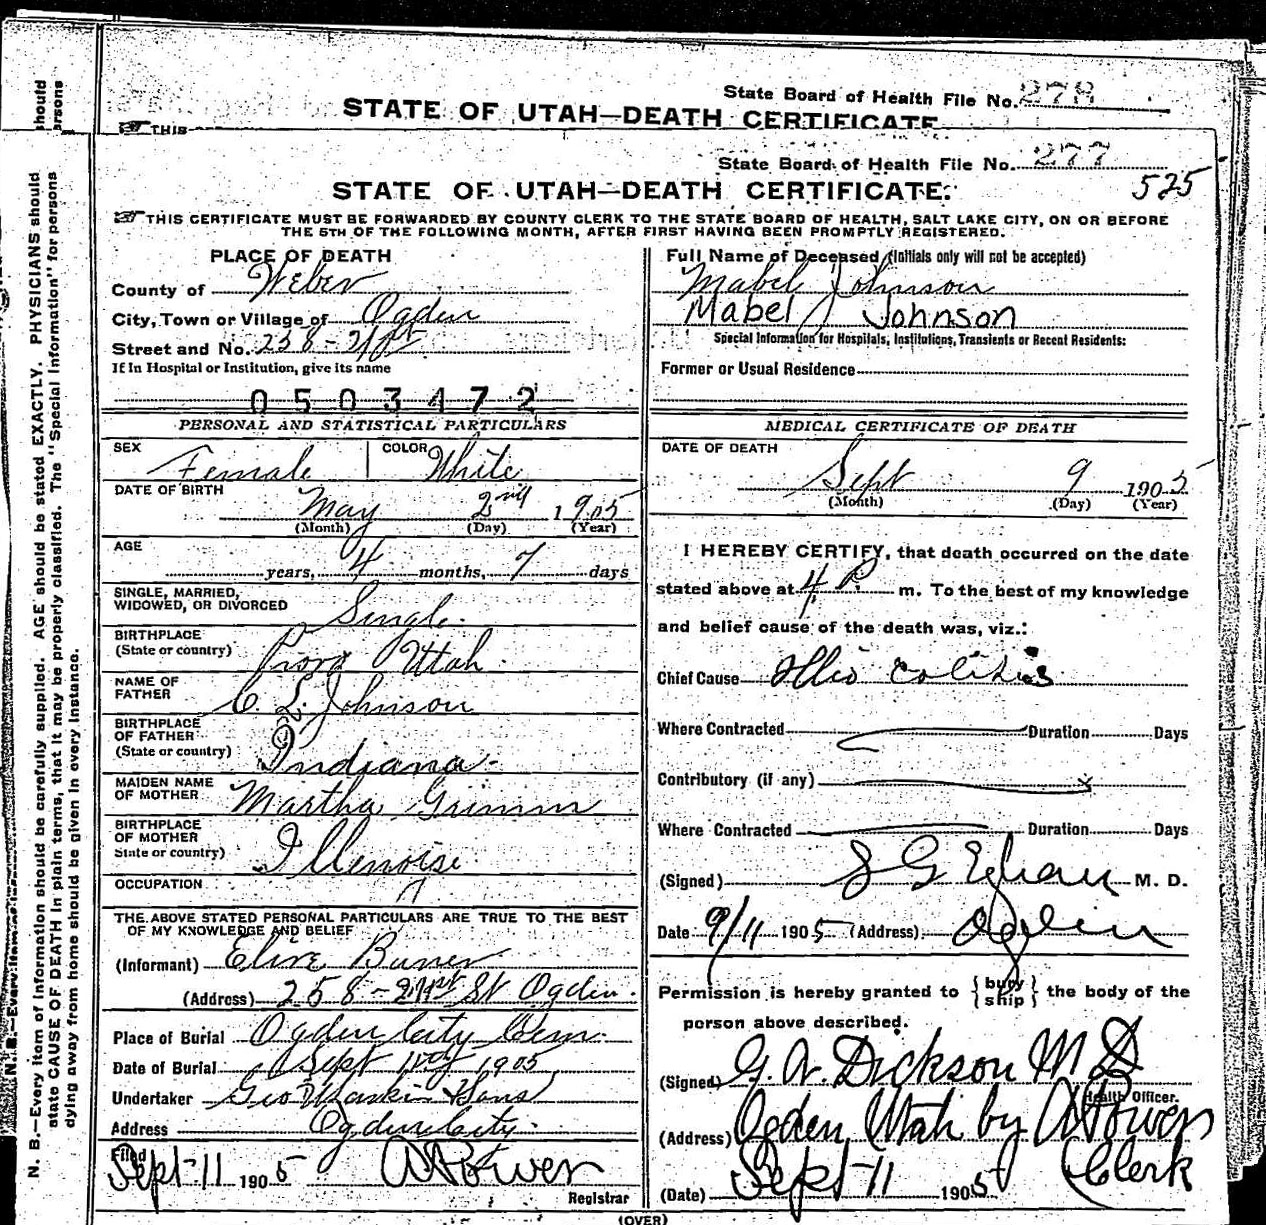 State Board of Health File No. 278
STATE OF UTAH—DEATH CERTIFICATE
THIS
State Board of Health File No. 277
525
STATE OF UTAH—DEATH CERTIFICATE.
THIS CERTIFICATE MUST BE FORWARDED BY COUNTY CLERK TO THE STATE BOARD OF HEALTH, SALT LAKE CITY, ON OR BEFORE
THE 5TH OF THE FOLLOWING MONTH, AFTER FIRST HAVING BEEN PROMPTLY REGISTERED.
PLACE OF DEATH
County of Weber
City, Town or Village of Ogden
Street and No. 258 - 21st
If in Hospital or Institution, give its name
0503472
PERSONAL AND STATISTICAL PARTICULARS
SEX Female COLOR White
DATE OF BIRTH May 2nd 1905
(Month) (Day) (Year)
AGE years, 4 months, 7 days
SINGLE, MARRIED,
WIDOWED, OR DIVORCED Single
BIRTHPLACE
(State or country) Provo Utah
NAME OF
FATHER C. L. Johnson
BIRTHPLACE
OF FATHER
(State or country) Indiana
MAIDEN NAME
OF MOTHER Martha Grimm
BIRTHPLACE
OF MOTHER
State or country) Illenoise
OCCUPATION
THE ABOVE STATED PERSONAL PARTICULARS ARE TRUE TO THE BEST
OF MY KNOWLEDGE AND BELIEF
(Informant)
(Address) 258 - 21st St Ogden
Place of Burial Ogden City Cem.
Date of Burial Sept 11 1905
Undertaker Geo Sons
Address Ogden City
Filed
Sept 11 1905
Registrar
Full Name of Deceased (Initials only will not be accepted)
Mabel Johnson
Mabel Johnson
Special Information for Hospitals, Institutions, Transients or Recent Residents:
Former or Usual Residence
MEDICAL CERTIFICATE OF DEATH
DATE OF DEATH
Sept 9 1905
(Month) (Day) (Year)
I HEREBY CERTIFY, that death occurred on the date
stated above at 4 P m. To the best of my knowledge
and belief cause of the death was, viz.:
Chief Cause Illio colitis
Where Contracted Duration Days
Contributory (if any)
Where Contracted Duration Days
(Signed) M. D.
Date 9/11 1905 (Address) Ogden
Permission is hereby granted to { bury ship } the body of the
person above described.
(Signed) G. W. Dickson M D
Health Officer.
(Address) Ogden, Utah by
Clerk
(Date) Sept 11 1905
(OVER)
N. B.—Every item of information should be carefully supplied. AGE should be stated EXACTLY. PHYSICIANS should
state CAUSE OF DEATH in plain terms, that it may be properly classified. The "Special Information" for persons
dying away from home should be given in every instance.